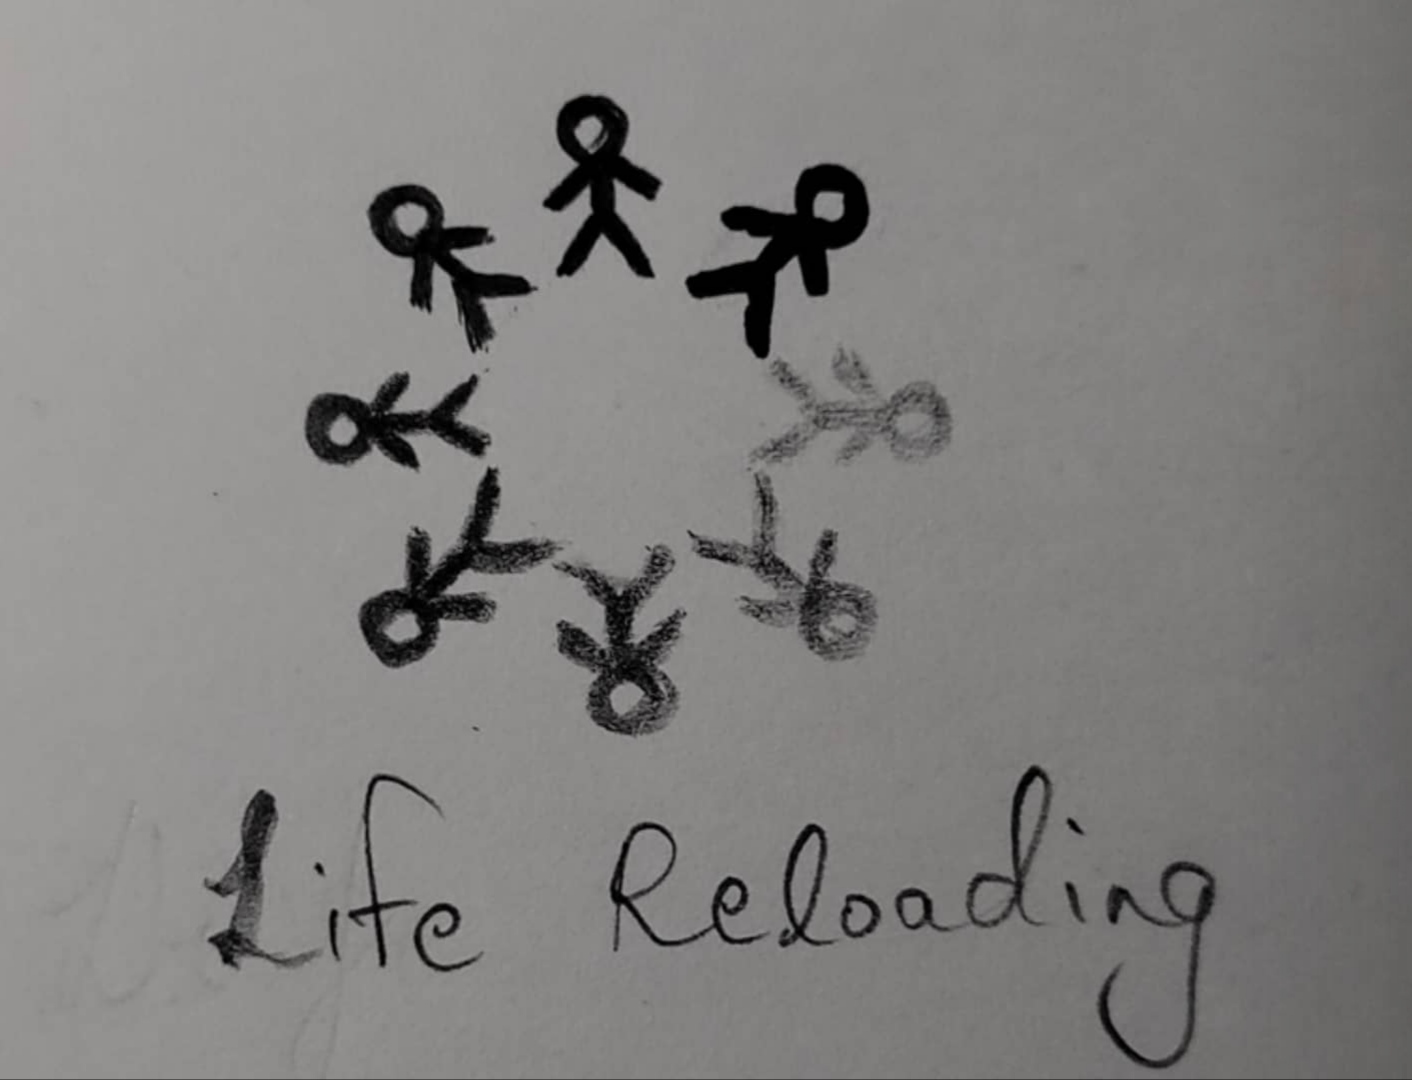 Life Reloading